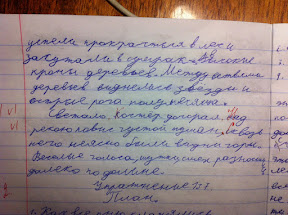 успели прокрасться в лес и
закутали в сумрак высокие
кроны деревьев. Между ветвями
деревьев виднелись звёзды и
острые рога полумесяца.
Светало. Костер догорал. Над
рекою повис густой туман. Сквозь
него неясно были видны горы.
Весёлые голоса, шум разносились
далеко по долине.
Упражнение 157
План.